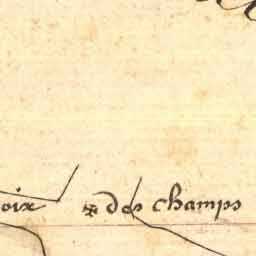 oix des champs